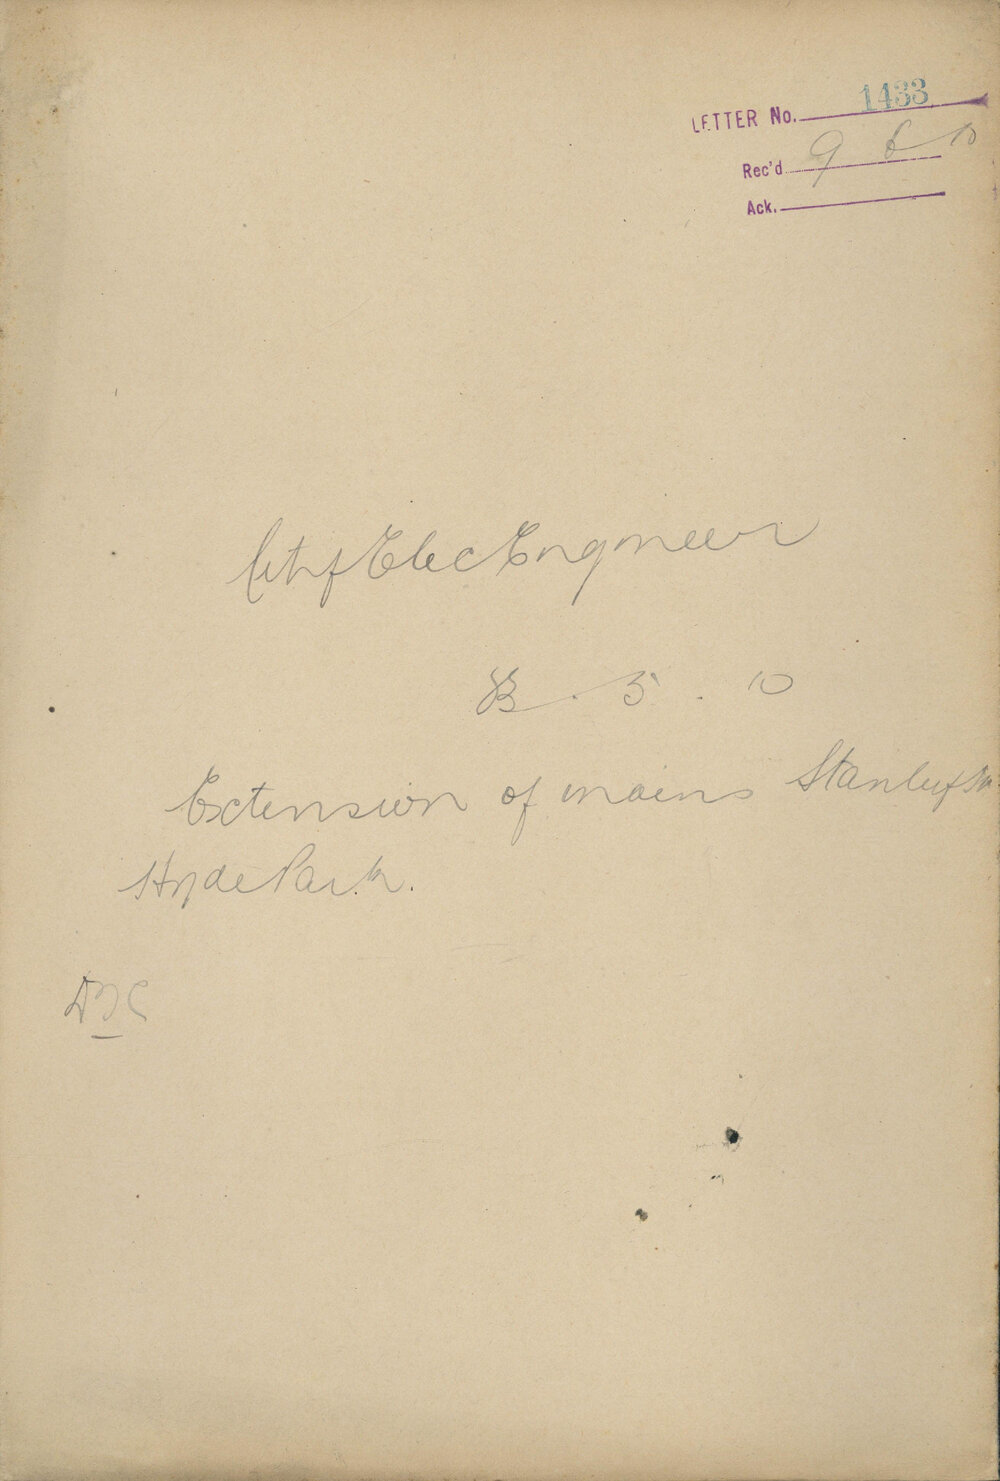 LETTER No. 1433
Rec'd 9 6 10
Ack.
City Elec Engineer
. 5 . 10
Extension of mains Stanley St
Hyde Park.